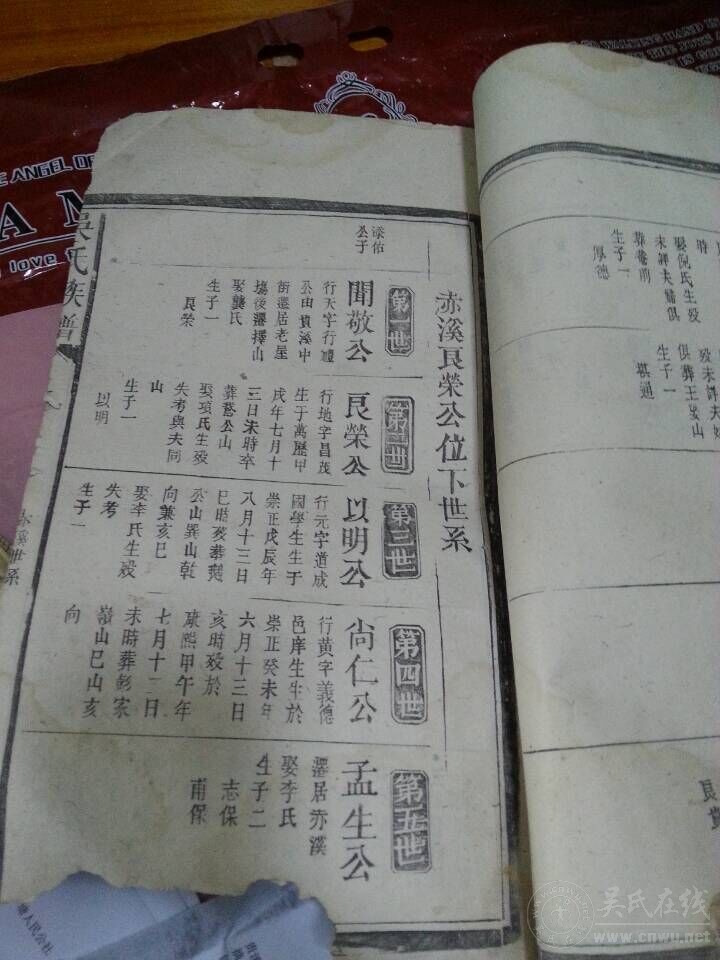 赤溪良榮公位下世系
第一世
聞敬公
公子
行天字行
公由貴溪中
街遷居老屋
塲後遷擇山
娶龔氏
生子一
良榮
第二世
良榮公
行地字昌茂
生于萬曆甲
戌年七月十
三日未時卒
葬鴛公山
娶項氏生殁
失考與夫同
山
生子一
以明
第三世
以明公
行元字道成
國學生生于
崇正戊辰年
八月十三日
巳時殁葬
公山巽山乾
向兼亥巳
娶李氏生殁
失考
生子一
第四世
尚仁公
行黃字義德
邑庠生生於
崇正癸未年
六月十三日
亥時殁於
康熙甲午年
七月十二日
未時葬彭家
嶺山巳山亥
向
第五世
孟生公
遷居赤溪
娶李氏
生子二
志保
甫保
吳氏族譜
赤溪世系
時
娶倪氏生殁
未詳夫婦俱
葬菴前
生子一
厚德
殁未詳夫婦
俱葬王家山
生子一
祺通
良貴
THE ANGEL OF
love
WALKING HAND IN
THE JOYS
IS GO
人民公社
吴氏在线
www.cnwu.net